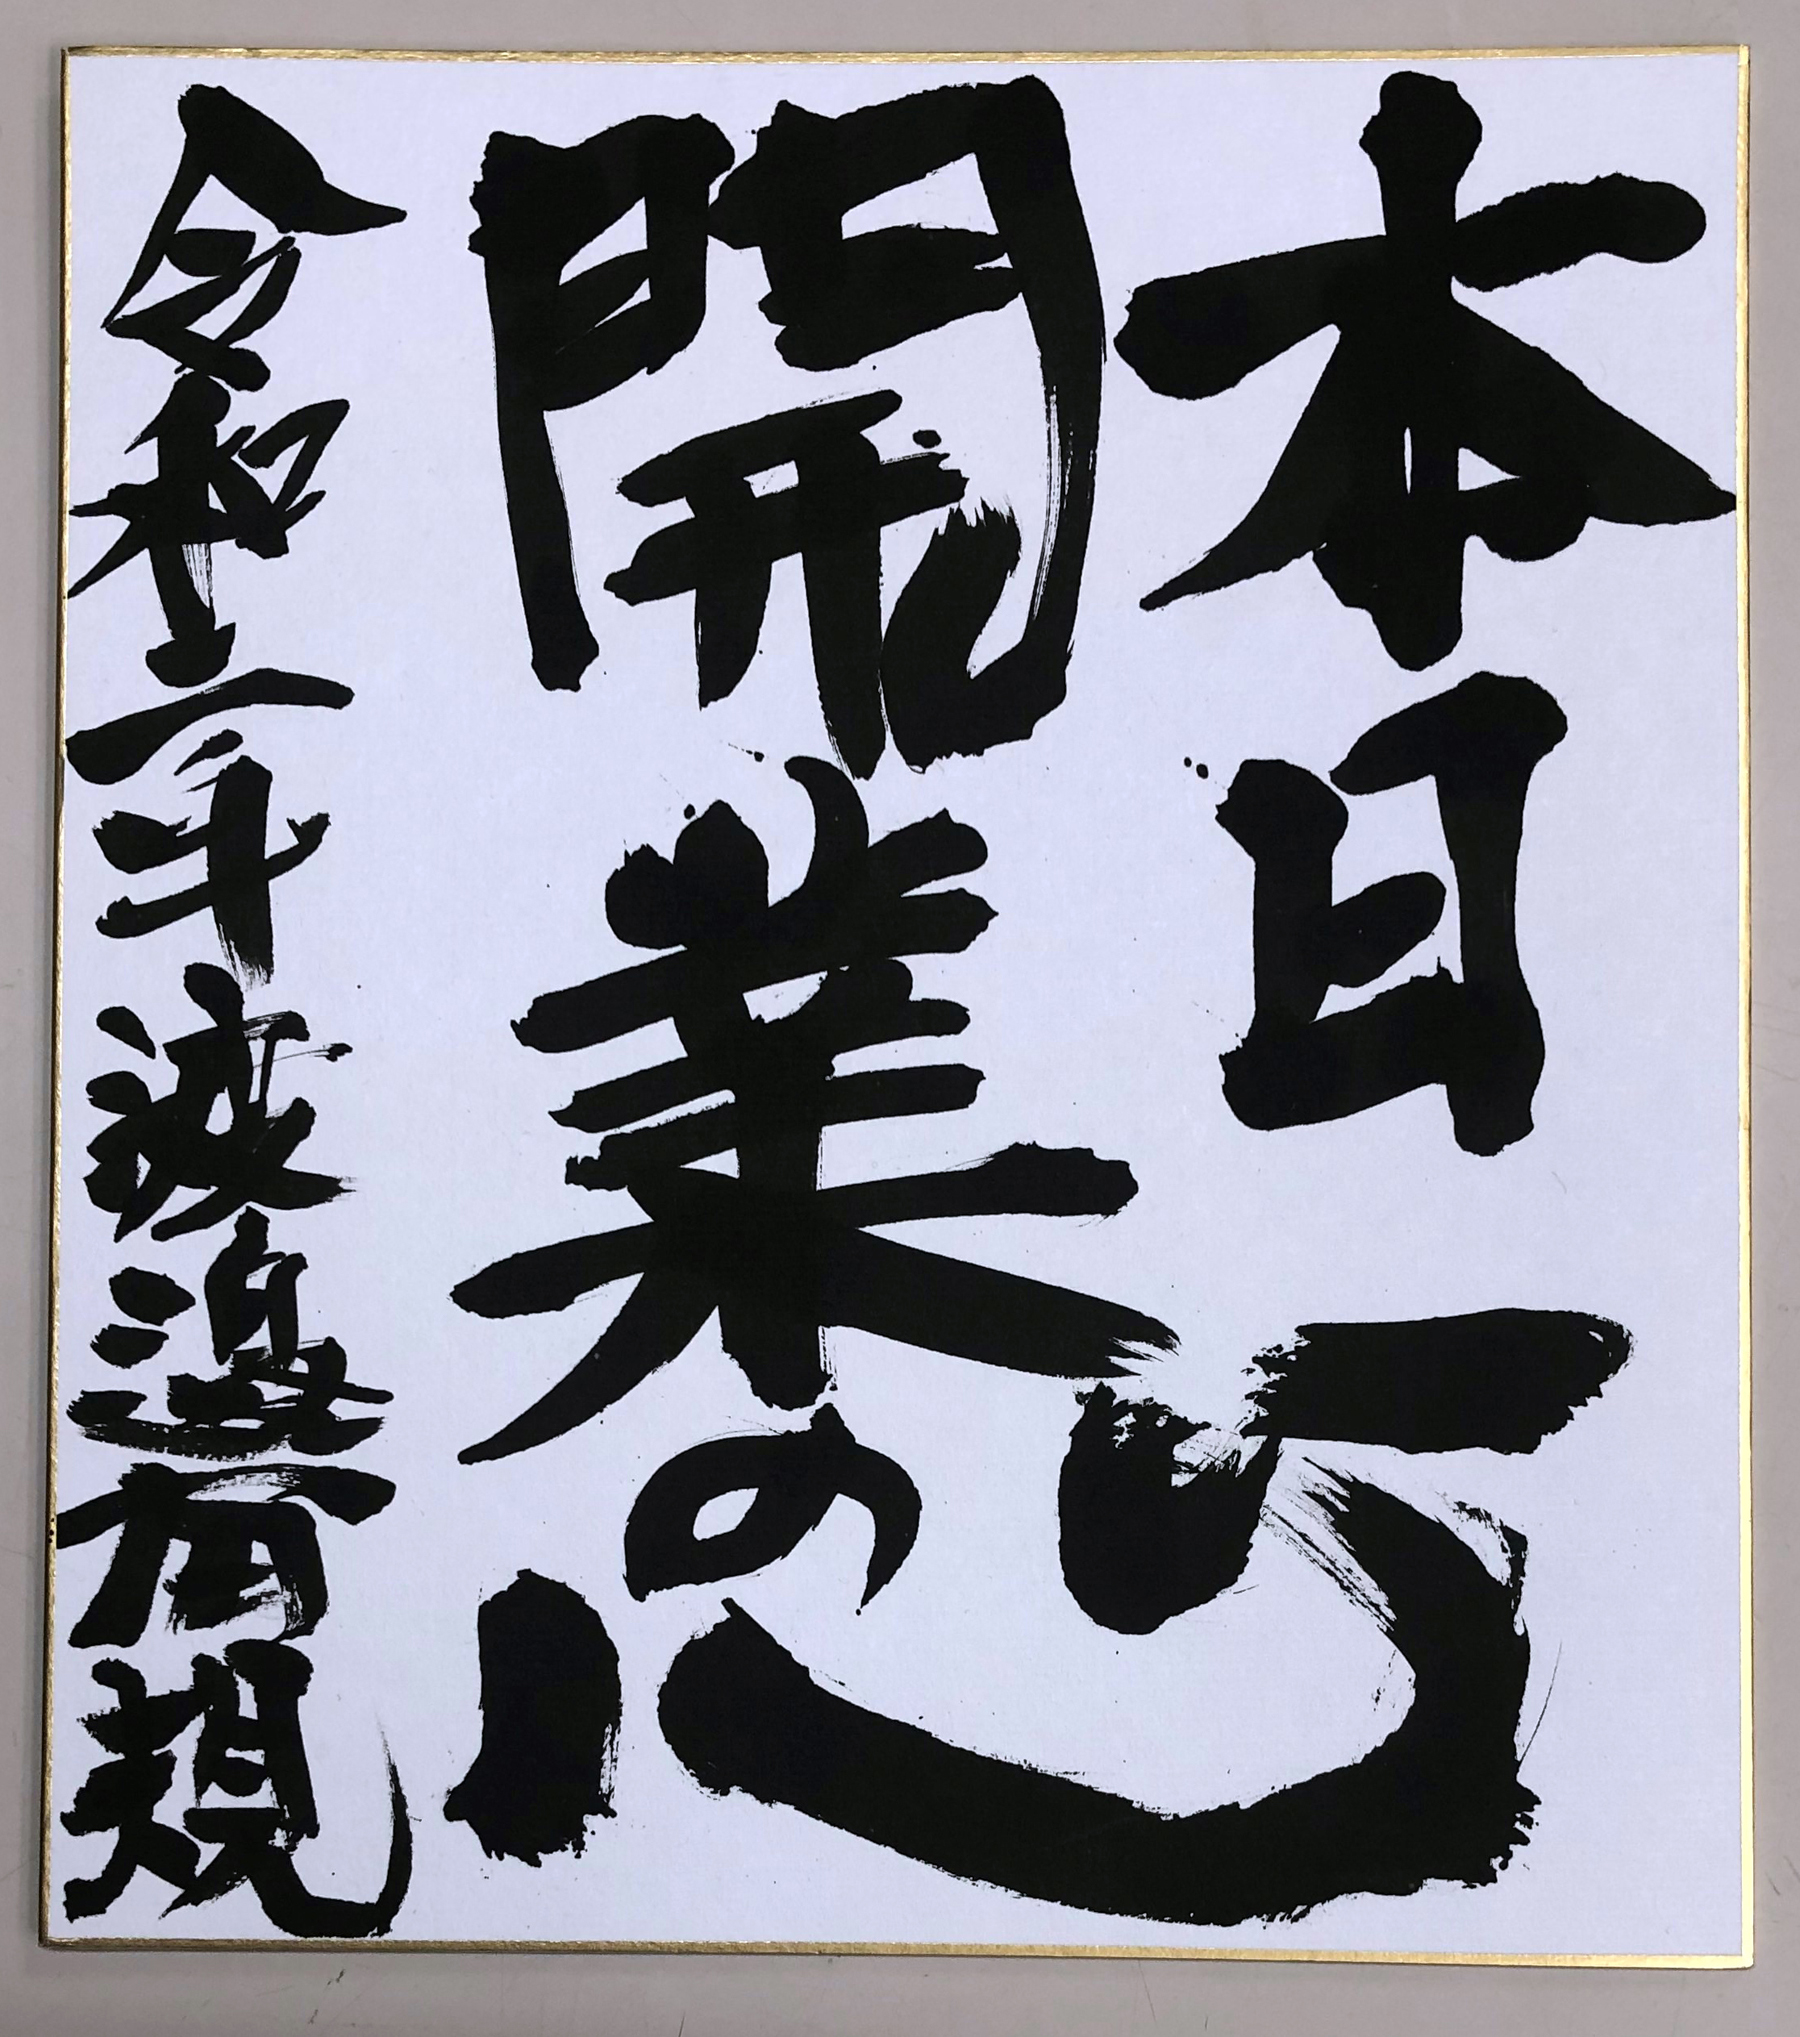 本日
開業の心
令和二年 渡邊有規